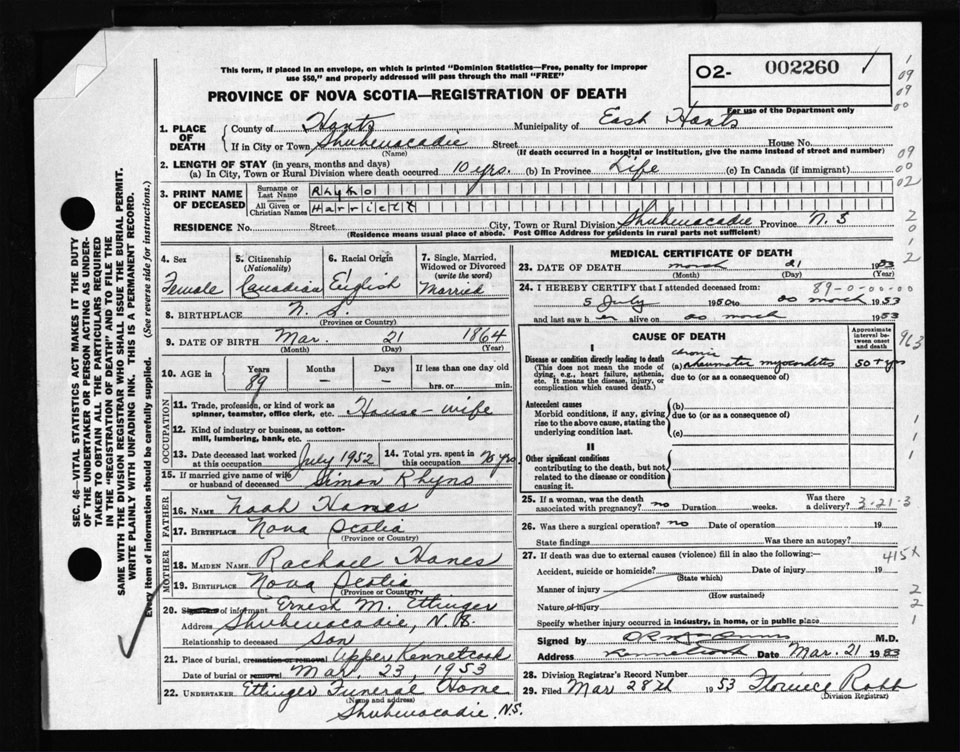 This form, if placed in an envelope, on which is printed "Dominion Statistics—Free, penalty for improper
use $50," and properly addressed will pass through the mail "FREE"
PROVINCE OF NOVA SCOTIA—REGISTRATION OF DEATH
02- 002260
For use of the Department only
1. PLACE OF DEATH
County of Hants Municipality of East Hants
If in City or Town Shubenacadie Street House No.
(Name) (If death occurred in a hospital or institution, give the name instead of street and number)
2. LENGTH OF STAY (in years, months and days)
(a) In City, Town or Rural Division where death occurred 10 yrs. (b) In Province Life (c) In Canada (if immigrant)
3. PRINT NAME OF DECEASED
Surname or Last Name Rhyno
All Given or Christian Names Harriett
RESIDENCE No. Street City, Town or Rural Division Shubenacadie Province N. S
(Residence means usual place of abode. Post Office Address for residents in rural parts not sufficient)
4. Sex
Female
5. Citizenship
(Nationality)
Canadian
6. Racial Origin
English
7. Single, Married, Widowed or Divorced
(write the word)
Married
8. BIRTHPLACE N. S.
(Province or Country)
9. DATE OF BIRTH Mar. 21 1864
(Month) (Day) (Year)
10. AGE in Years Months Days If less than one day old
89 – – hrs. or min.
OCCUPATION
11. Trade, profession, or kind of work as
spinner, teamster, office clerk, etc. House-wife
12. Kind of industry or business, as cotton-
mill, lumbering, bank, etc.
13. Date deceased last worked
at this occupation July 1952
14. Total yrs. spent in
this occupation 70 yrs
15. If married give name of wife
or husband of deceased Simon Rhyno
FATHER
16. Name Noah Hanes
17. Birthplace Nova Scotia
(Province or Country)
MOTHER
18. MAIDEN NAME Rachael Hanes
19. BIRTHPLACE Nova Scotia
(Province or Country)
20. of informant Ernest M. Ettinger
Address Shubenacadie, N.S.
Relationship to deceased son
21. Place of burial, cremation or removal Upper Kennetcook
Date of burial or removal Mar. 23, 1953
22. UNDERTAKER Ettinger Funeral Home
(Name and address)
Shubenacadie. N.S.
MEDICAL CERTIFICATE OF DEATH
23. DATE OF DEATH march 21 1953
(Month) (Day) (Year)
89-0-00-00
24. I HEREBY CERTIFY that I attended deceased from:
5 July 1950 to as march 1953
and last saw her alive on as march 1953
CAUSE OF DEATH
Approximate interval between onset and death
I
Disease or condition directly leading to death
(This does not mean the mode of dying, e.g., heart failure, asthenia, etc. It means the disease, injury, or complication which caused death.)
chronic
(a) rheumatic myocarditis 50+yrs
due to (or as a consequence of)
Antecedent causes
Morbid conditions, if any, giving rise to the above cause, stating the underlying condition last.
(b)
due to (or as a consequence of)
(c)
II
Other significant conditions
contributing to the death, but not related to the disease or condition causing it.
25. If a woman, was the death
associated with pregnancy? no Duration weeks. Was there a delivery? 3-21-3
26. Was there a surgical operation? no Date of operation 19
State findings Was there an autopsy?
27. If death was due to external causes (violence) fill in also the following:—
Accident, suicide or homicide? Date of injury 19
(State which)
Manner of injury
(How sustained)
Nature of injury
Specify whether injury occurred in industry, in home, or in public place
Signed by M.D.
Address Kennetcook Date Mar. 21 1953
28. Division Registrar's Record Number
29. Filed Mar 28th 1953 Florence Robb
(Division Registrar)
SEC. 46—VITAL STATISTICS ACT MAKES IT THE DUTY
OF THE UNDERTAKER OR PERSON ACTING AS UNDER-
TAKER TO OBTAIN ALL THE PARTICULARS REQUIRED
IN THE "REGISTRATION OF DEATH" AND TO FILE THE
SAME WITH THE DIVISION REGISTRAR WHO SHALL ISSUE THE BURIAL PERMIT.
WRITE PLAINLY WITH UNFADING INK. THIS IS A PERMANENT RECORD.
Every item of information should be carefully supplied. (See reverse side for instructions.)
1
09
09
00
09
00
02
2
0
1
2
963
1
1
1
415x
2
2
1